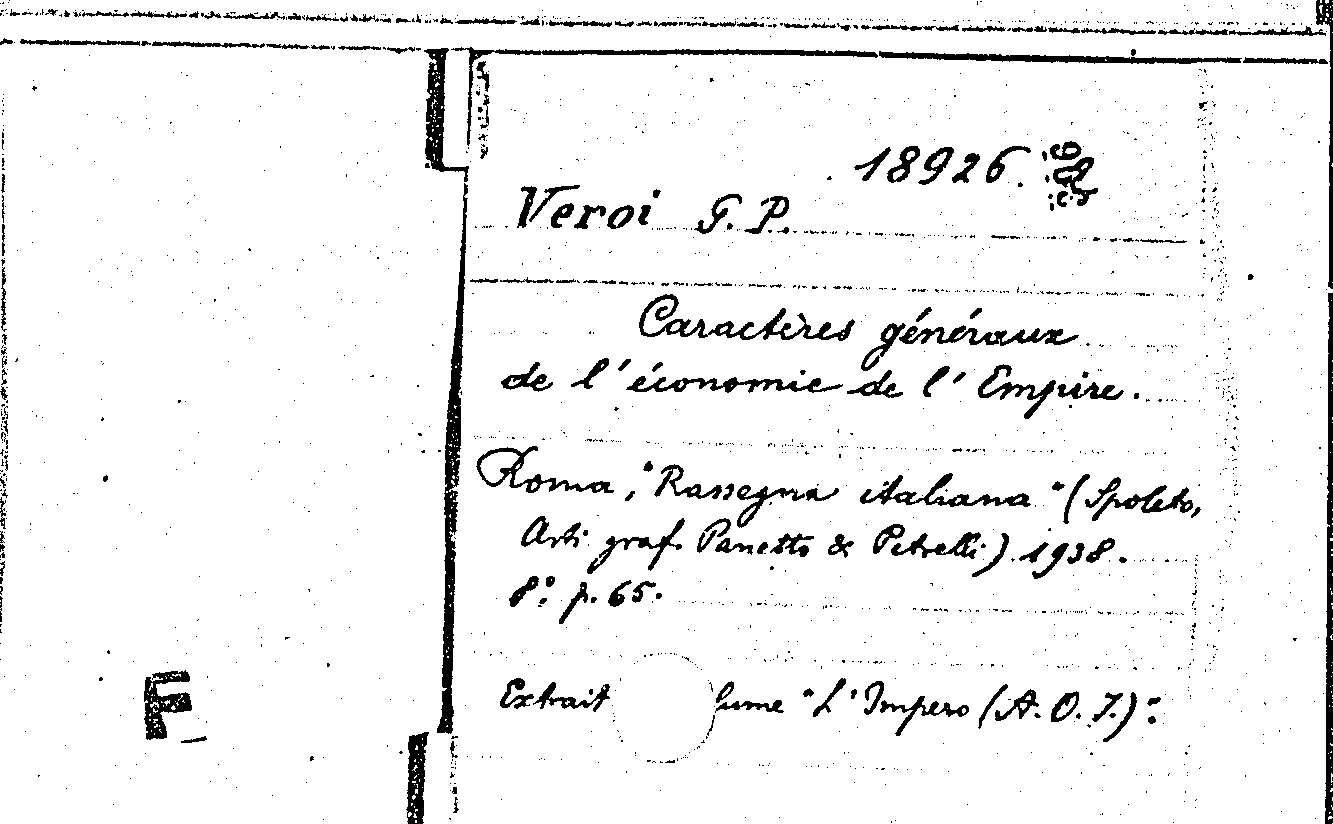 18926.
Veroi G. P.
Caractères généraux
de l'économie de l'Empire.
Roma, "Rassegna italiana" (Spoleto,
Arti graf. Panetto & Petrelli) 1938.
8º p. 65.
Extrait lume "L'Impero (A. O. I.)".
F